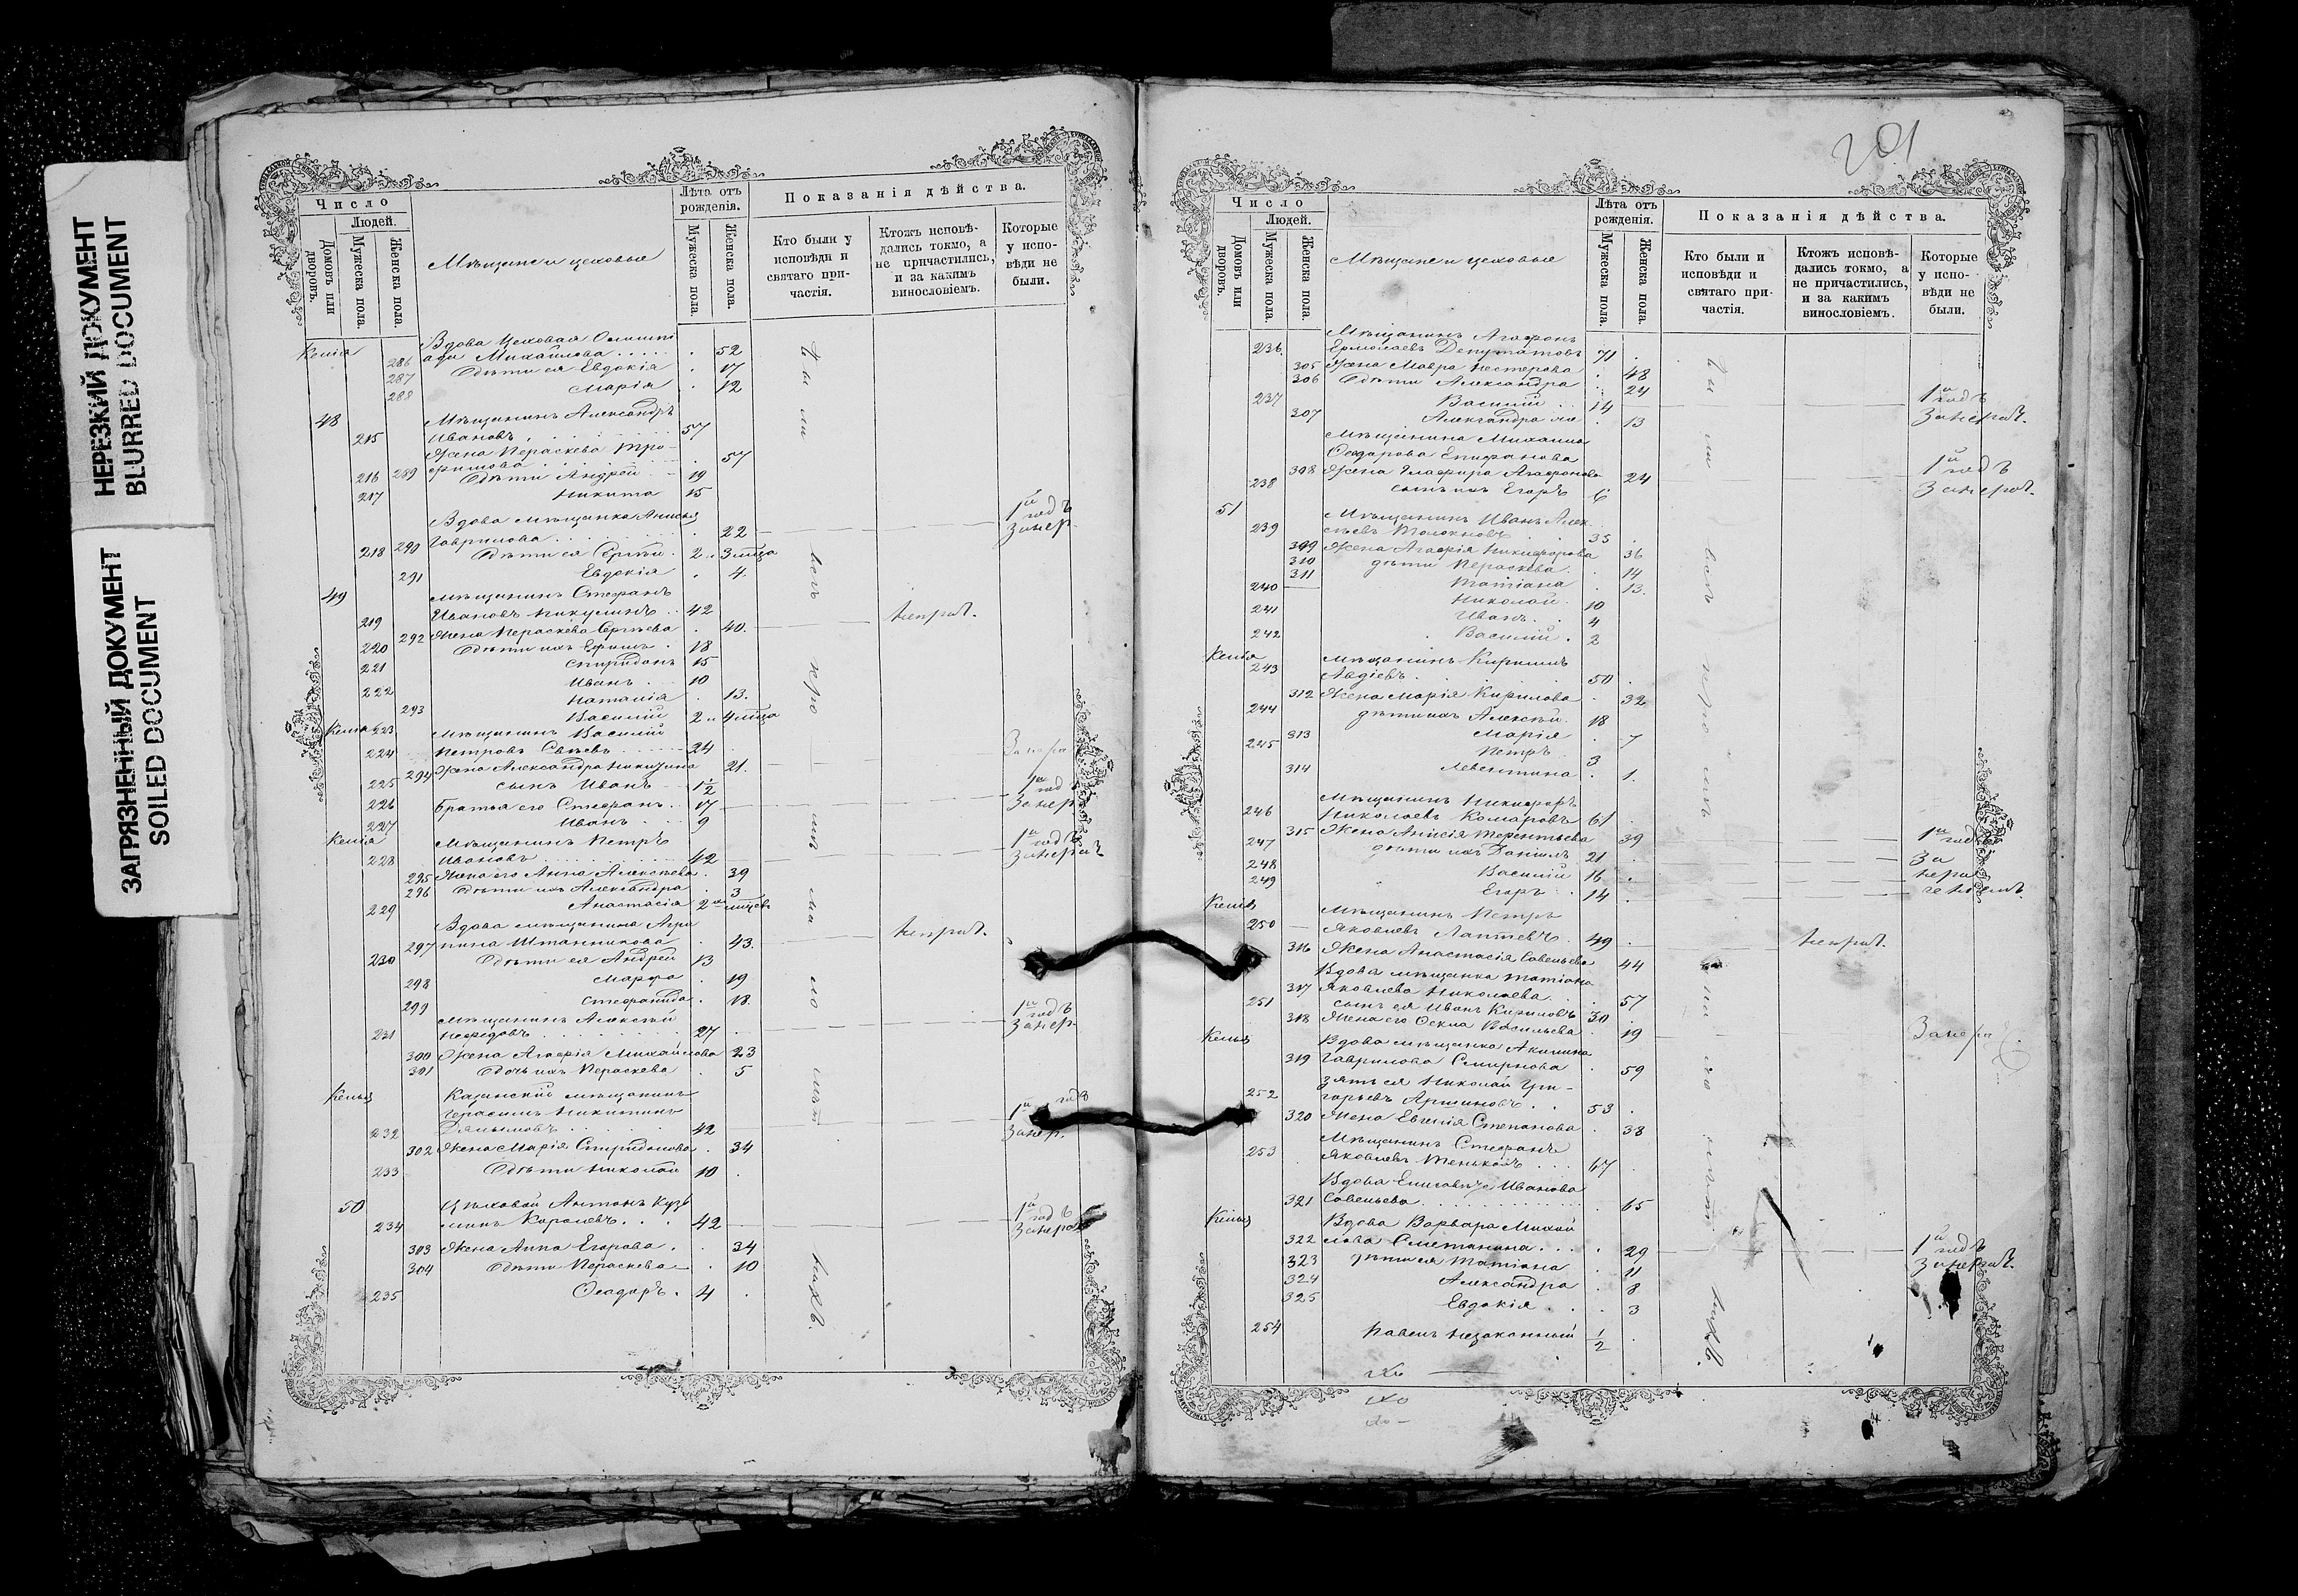 НЕРЕЗКИЙ ДОКУМЕНТ
BLURRED DOCUMENT
ЗАГРЯЗНЕННЫЙ ДОКУМЕНТ
SOILED DOCUMENT
Число
Людей.
Домовъ или дворовъ.
Мужеска пола.
Женска пола.
Мѣщане и цеховые
Лѣта отъ рожденія.
Мужеска пола.
Женска пола.
Показанія дѣйства.
Кто были у исповѣди и святаго причастія.
Ктожъ исповѣдались токмо, а не причастились, и за какимъ винословіемъ.
Которые у исповѣди не были.
Вдова Цеховая
286 Михайлова 52
287 Дѣти ея Евдокія 17
288 Марія 12
48 Мѣщанинъ Александръ
215 Ивановъ 57
Жена Параскева Тро-
289 фимова 57
216 Дѣти Андрей 19
217 Никита 15
Вдова мѣщанка
290 Гаврилова 22 1й годъ
218 Дѣти ея Сергѣй 2 и 3 мца
291 Евдокія 4
49 Мѣщанинъ Стефанъ
219 Ивановъ Никулинъ 42
292 Жена Параскева Сергѣева 40
220 Дѣти ихъ Ефимъ 18
221 Спиридонъ 15
222 Иванъ 10
293 Наталія 13
223 Василій 2 и 4 мца
Мѣщанинъ Василій
224 Петровъ 24
294 Жена Александра Никитина 21
225 сынъ Иванъ 1½
226 Братья его Стефанъ 17 1й годъ
227 Иванъ 9
Мѣщанинъ Петръ
228 Ивановъ 42 1й годъ
295 Жена его Анна Алексѣева 39
296 Дѣти ихъ Александра 3
229 Анастасія 2
Вдова мѣщанина Агри
297 пина Штанникова 43
230 Дѣти ея Андрей 13
298 Марфа 19
299 Стефанида 18
Мѣщанинъ Алексѣй
231 27 1й годъ
300 Жена Агафія Михайлова 23
301 Дочь ихъ Параскева 5
Казанскій мѣщанинъ
Герасимъ Никитинъ
232 42 1й годъ
302 Жена Марія Спиридонова 34
233 Дѣти Николай 10
50 Цѣховой Антонъ Кузь
234 минъ Королевъ 42 1й годъ
303 Жена Анна Егорова 34
304 Дѣти Параскева 10
235 Ѳеодоръ 4
201
Число
Людей.
Домовъ или дворовъ.
Мужеска пола.
Женска пола.
Мѣщане и цеховые
Лѣта отъ рожденія.
Мужеска пола.
Женска пола.
Показанія дѣйства.
Кто были и исповѣди и святаго причастія.
Ктожъ исповѣдались токмо, а не причастились, и за какимъ винословіемъ.
Которые у исповѣди не были.
Мѣщанинъ Агафонъ
236 Ермолаевъ Депутатовъ 71
305 Жена Мавра Нестерова 48
306 Дѣти Александра 24
237 Василій 14 1й годъ
307 Александра 13
Мѣщанина Михаила
Ѳеодорова Епифанова
308 Жена Глафира Агафонова 24 1й годъ
238 сынъ ихъ Егоръ 6
51 Мѣщанинъ Иванъ Алек
239 сѣевъ Толокновъ 35
309 Жена Агафія Никифорова 36
310 дѣти Параскева 14
311 Татіана 13
240 Николай 10
241 Иванъ 4
242 Василій 2
Мѣщанинъ Кирилъ
243 Авдіевъ 50
312 Жена Марія Кирилова 32
244 дѣти ихъ Алексѣй 18
313 Марія 7
245 Петръ 3
314 Левентина 1
Мѣщанинъ Никифоръ
246 Николаевъ Комаровъ 61
315 Жена Анисія Терентьева 39 1й годъ
247 дѣти ихъ Даніилъ 21
248 Василій 16
249 Егоръ 14
Мѣщанинъ Петръ
250 Яковлевъ Лаптевъ 49
316 Жена Анастасія Савельева 44
Вдова мѣщанка Татіана
317 Яковлева Николаева 57
251 сынъ ея Иванъ Кириловъ 30
318 Жена его Ѳекла Васильева 19
Вдова мѣщанка Акилина
319 Гаврилова Смирнова 59
зять ея Николай Гри-
252 горьевъ Аршиновъ 53
320 Жена Евгенія Степанова 38
Мѣщанинъ Стефанъ
253 Яковлевъ 67
Вдова Елисавета Иванова
321 Савельева 65
Вдова Варвара Михай
322 лова Сметанина 29 1й годъ
323 дѣти ея Татіана 11
324 Александра 8
325 Евдокія 3
254 Павелъ незаконный ½